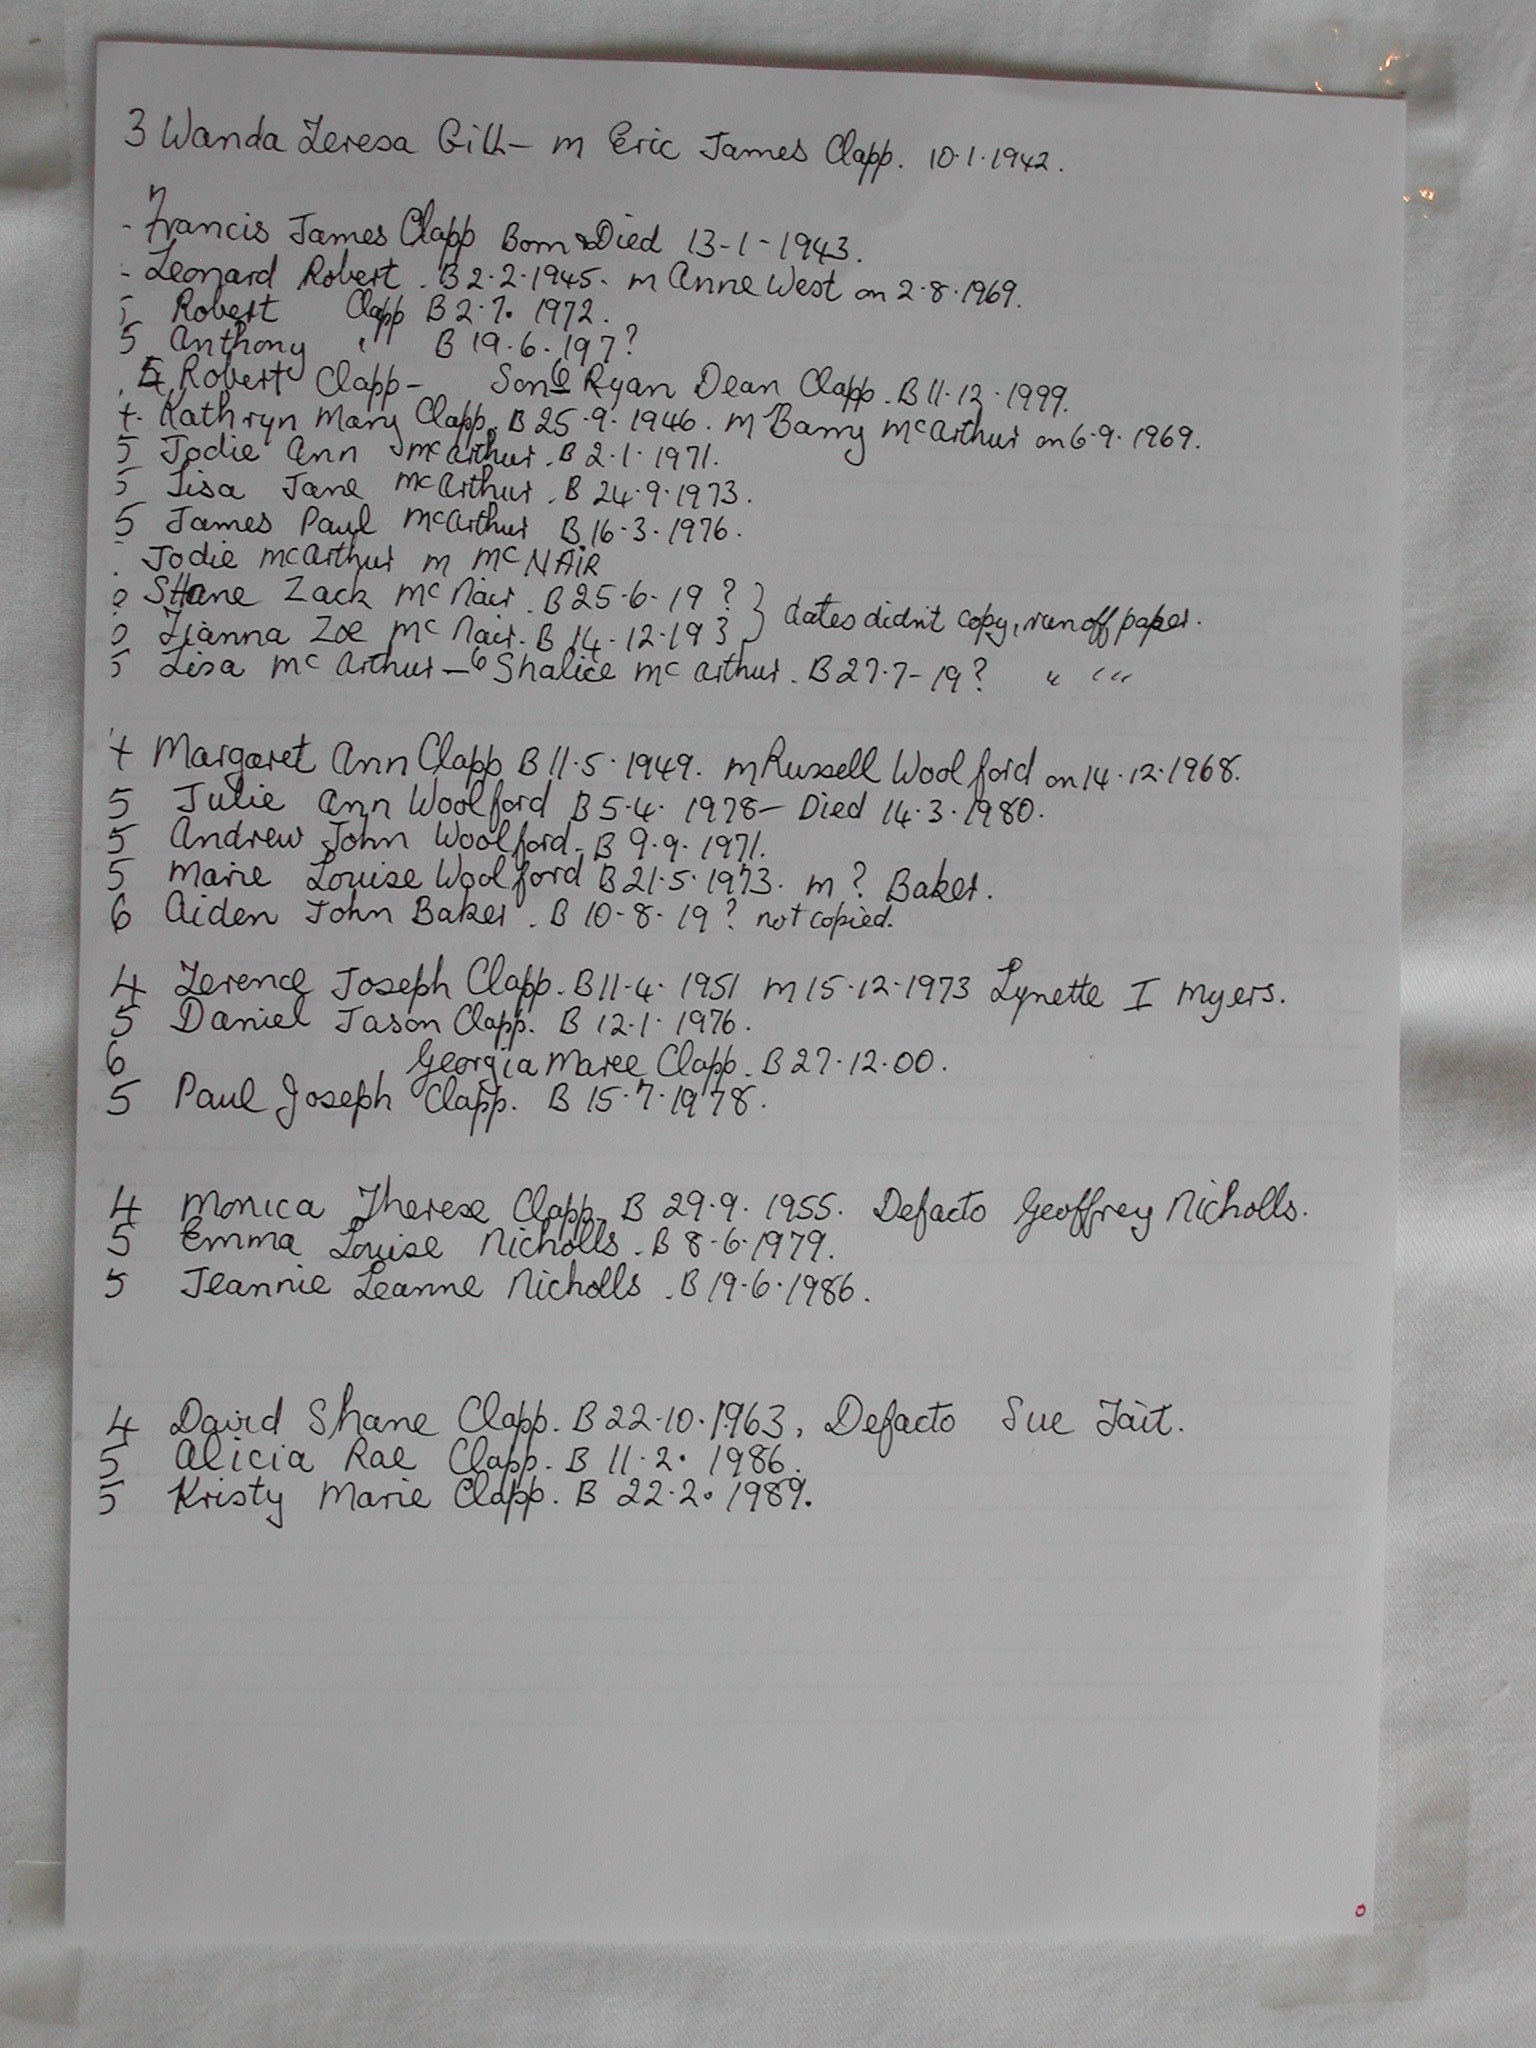 3 Wanda Teresa Gill - m Eric James Clapp. 10.1.1942.
- Francis James Clapp Born & Died 13-1-1943.
- Leonard Robert. B 2.2.1945. m Anne West on 2.8.1969.
5 Robert Clapp B 2.7.1972.
5 Anthony " B 19.6.197?
5 Robert Clapp - Son 6 Ryan Dean Clapp. B 11.12.1999.
4 Kathryn Mary Clapp. B 25.9.1946. m Barry McArthur on 6.9.1969.
5 Jodie Ann McArthur. B 2.1.1971.
5 Lisa Jane McArthur. B 24.9.1973.
5 James Paul McArthur B.16.3.1976.
Jodie McArthur m McNAIR
Shane Zack McNair. B 25-6-19? } dates didn't copy, ran off paper.
Tianna Zoe McNair. B 14.12.19?
5 Lisa McArthur - 6 Shalice McArthur. B 27.7-19? " " "
4 Margaret Ann Clapp B 11.5.1949. m Russell Woolford on 14.12.1968.
5 Julie Ann Woolford B 5.4.1978 - Died 14.3.1980.
5 Andrew John Woolford. B 9.9.1971.
5 Marie Louise Woolford B 21.5.1973. m ? Baker.
6 Aiden John Baker. B 10-8-19? not copied.
4 Terence Joseph Clapp. B 11-4-1951 m 15-12-1973 Lynette I Myers.
5 Daniel Jason Clapp. B 12.1.1976.
6 Georgia Maree Clapp. B 27.12.00.
5 Paul Joseph Clapp. B 15.7.1978.
4 Monica Therese Clapp. B 29.9.1955. Defacto Geoffrey Nicholls.
5 Emma Louise Nicholls. B 8-6-1979.
5 Jeannie Leanne Nicholls. B 19.6.1986.
4 David Shane Clapp. B 22-10.1963, Defacto Sue Tait.
5 Alicia Rae Clapp. B 11.2.1986.
5 Kristy Marie Clapp. B 22.2.1989.